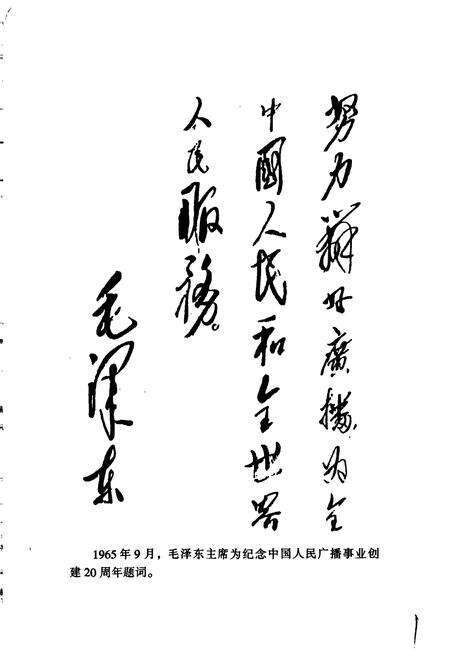 努力辦好廣播,为全
中國人民和全世界
人民服務。
毛泽东
1965年9月，毛泽东主席为纪念中国人民广播事业创
建20周年题词。